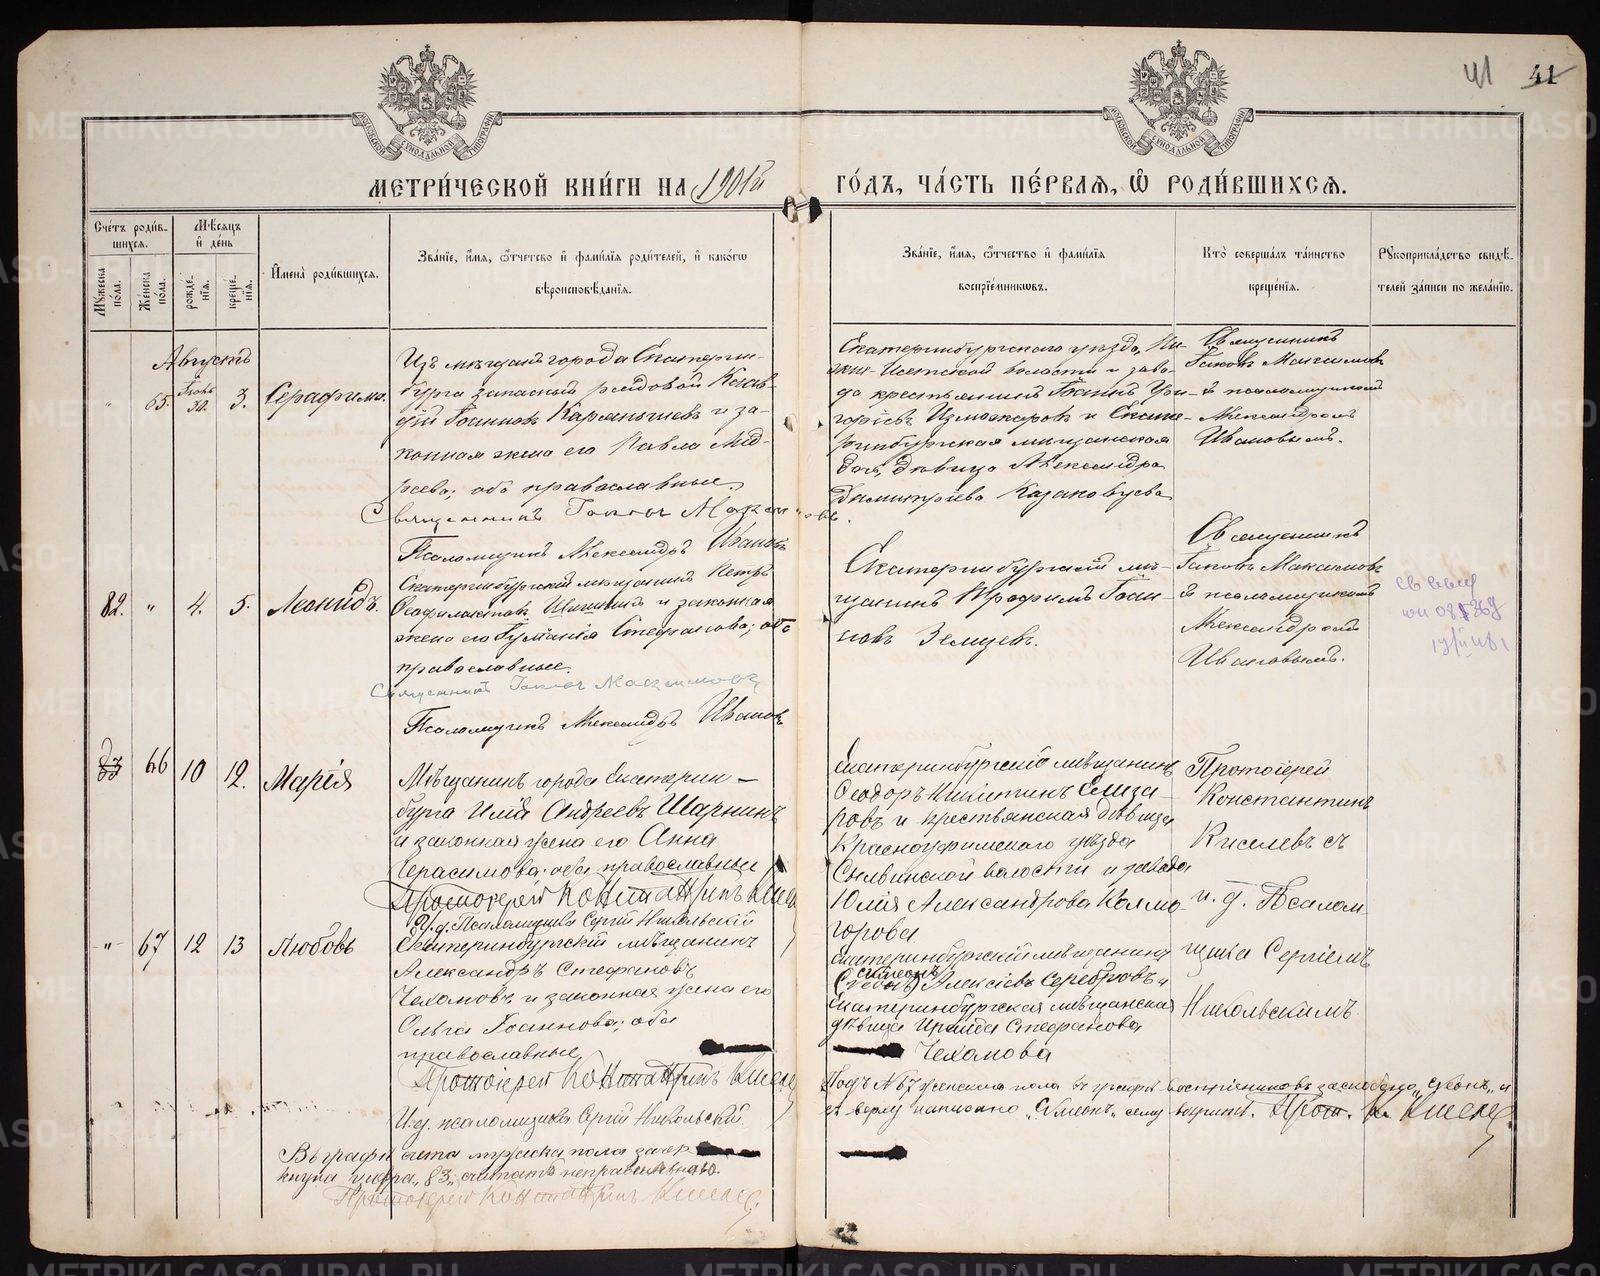 41
41
МЕТРИ́ЧЕСКОЙ КНИ́ГИ НА 1901й ГО́ДЪ, ЧА́СТЬ ПЕ́РВАЯ, Ѿ РОДИ́ВШИХСЯ.
Сче́тъ роди́вшихся.
Му́жеска по́ла.
Же́нска по́ла.
Мѣ́сяцъ и де́нь
рожде́нїя.
креще́нїя.
Имена̀ роди́вшихся.
Зва́нїе, и́мя, ѻ́тчество и фами́лїя роди́телей, и како́гѡ
вѣроисповѣ́данїя.
Зва́нїе, и́мя, ѻ́тчество и фами́лїя
воспрїе́мникѡвъ.
Кто̀ соверша́лъ та́инство
креще́нїя.
Рꙋкоприкла́дство свидѣ́-
телей за́писи по жела́нїю.
Августъ
" 65. 30. 3. Серафима.
Изъ мѣщанъ города Екатерин-
бурга запасный рядовой
Іоанновъ и за-
конная жена его Павла
оба православные.
Священникъ Іаковъ
Псаломщикъ Александръ Ивановъ
Екатеринбургскаго уѣзда, Ни-
жне-Исетской волости и заво-
да крестьянинъ Іоаннъ Гри-
горьевъ Изможеровъ и Екате-
ринбургская мѣщанская
дочь, дѣвица Александра
Димитріева Казановцева
Священникъ
Іаковъ Максимовъ
й псаломщикомъ
Александромъ
Ивановымъ.
82. " 4. 5. Леонидъ.
Екатеринбургскій мѣщанинъ Петръ
Феофилактовъ и законная
жена его Стефанова; оба
православные.
Священникъ Іаковъ Максимовъ
Псаломщикъ Александръ Ивановъ
Екатеринбургскій мѣ-
щанинъ Трофимъ Іоан-
новъ Земцевъ.
Священникъ
Іаковъ Максимовъ
й псаломщикомъ
Александромъ
Ивановымъ.
83 66 10 12. Марія
Мѣщанинъ города Екатерин-
бурга Илія Андреевъ Шарнинъ
и законная жена его Анна
Герасимова; оба православные
Протоіерей Константинъ
И. д. Псаломщика Сергій Никольскій
Екатеринбургскій мѣщанинъ
Феодоръ Никитинъ Елиза-
ровъ и крестьянская дѣвица
Красноуфимскаго уѣзда
Сылвинской волости и завода
Юлія Александрова Колмо-
горова
Протоіерей
Константинъ
Киселевъ съ
и. д. Псалом-
щика Сергіемъ
Никольскимъ
"-" 67 12 13 Любовь
Екатеринбургскій мѣщанинъ
Александръ Стефановъ
Чехомовъ и законная жена его
Ольга Іоаннова; оба
православные
Протоіерей Константинъ
И. д. псаломщика Сергій Никольскій.
Екатеринбургскій мѣщанинъ
Симеонъ
Алексіевъ Серебровъ и
Екатеринбургская мѣщанская
дѣвица Ираида Стефанова
Чехомова
Подъ № 67 женскаго пола въ графѣ воспріемниковъ заскоблено
верху написано „Симеонъ" сему вѣрить. Прот. К. Киселе
Въ графѣ счета мужска пола зачер-
кнутую цифра „83" считать неправильною.
Протоіерей Константинъ Киселе